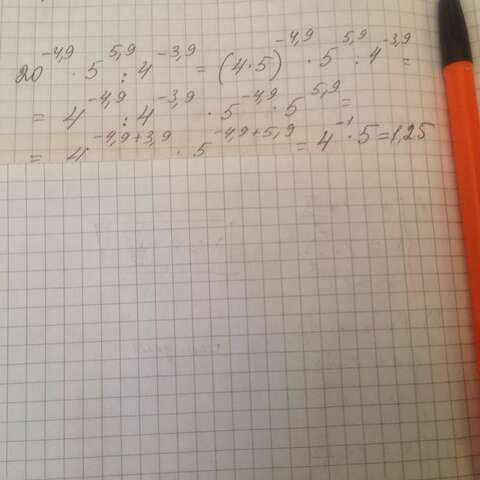 20^{-4,9} · 5^{5,9} : 4^{-3,9} = (4·5)^{-4,9} · 5^{5,9} : 4^{-3,9} =
= 4^{-4,9} : 4^{-3,9} · 5^{-4,9} · 5^{5,9} =
= 4^{-4,9+3,9} · 5^{-4,9+5,9} = 4^{-1} · 5 = 1,25